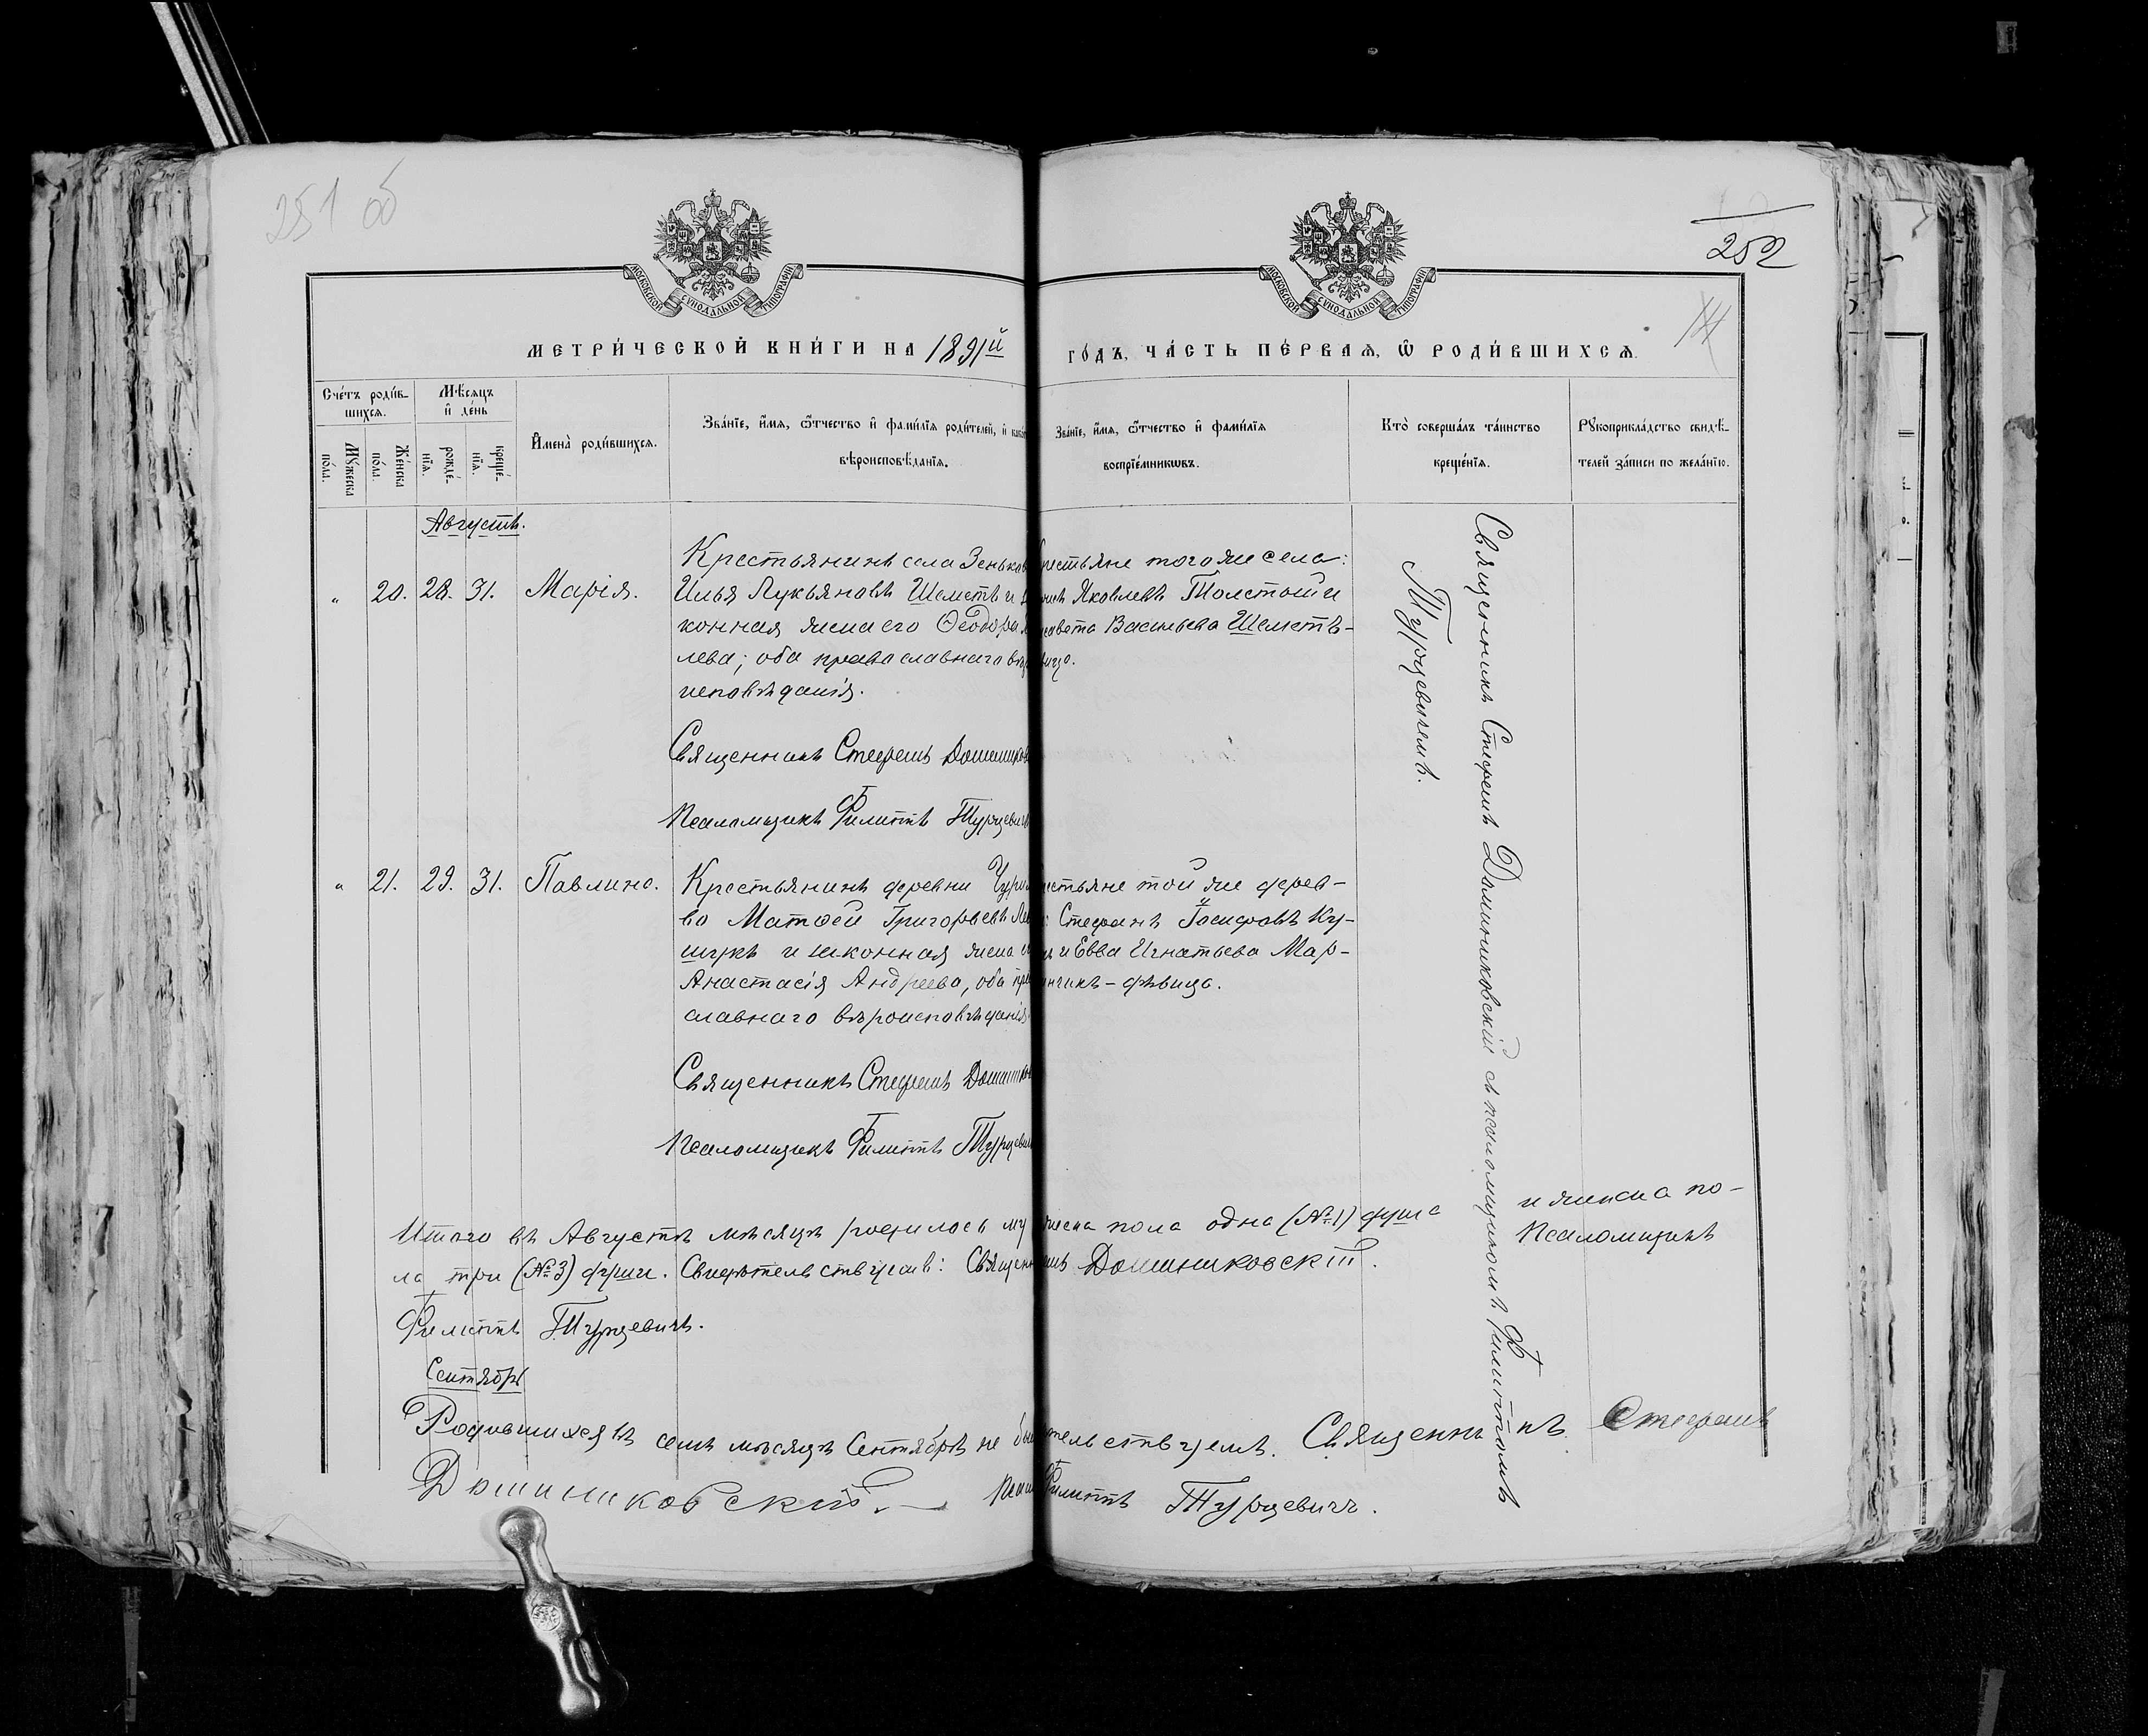 251 об
252
МОСКОВСКОЙ СУНОДАЛЬНОЙ ТИПОГРАФІИ
МОСКОВСКОЙ СУНОДАЛЬНОЙ ТИПОГРАФІИ
МЕТРИ́ЧЕСКОЙ КНИ́ГИ НА 1891й
ГО́ДЪ, ЧА́СТЬ ПЕ́РВАЯ, Ѡ РОДИ́ВШИХСЯ.
Сче́тъ роди́в-
шихся.
Мѣ́сяцъ
и де́нь
Му́жеска
по́ла.
Же́нска
по́ла.
рожде́-
нїя.
креще́-
нїя.
Имена̀ роди́вшихся.
Зва́нїе, и́мя, ѻ́тчество и фами́лїя роди́телей, и
вѣроисповѣ́данїя.
Зва́нїе, и́мя, ѻ́тчество и фами́лїя
воспрїе́мникѡвъ.
Кто̀ соверша́лъ та́инство
креще́нїя.
Рукоприкла́дство свидѣ́-
телей за́писи по жела́нїю.
Августъ.
„ 20. 28. 31. Марія.
Крестьянинъ села Зеньков
Илья Лукьяновъ Шеметъ и
конная жена его Ѳеодора
лева; оба православнаго вѣро
исповѣданія.
Священникъ Стефанъ Домиников
Псаломщикъ Филиппъ Турцевичъ
рестьяне того же села:
Яковлевъ Толстой и
савета Васильева Шеметъ-
вица.
„ 21. 29. 31. Павлина.
Крестьянинъ деревни Чури
во Матѳей Григорьевъ
шукъ и законная жена
Анастасія Андреева, оба пра
славнаго вѣроисповѣданія
Священникъ Стефанъ Домиников
Псаломщикъ Филиппъ Турцеви
естьяне той же дерев-
Стефанъ Іосифовъ Ку-
и Евва Игнатьева Мар-
инчикъ - дѣвица.
Священникъ Стефанъ Доминиковскій съ псаломщикомъ Филиппомъ
Турцевичемъ.
Итого въ Августѣ мѣсяцѣ родилось мужеска пола одна (№1) душа и женска по-
ла три (№3) души. Свидѣтельствуемъ: Священникъ Доминиковскій. Псаломщикъ
Филиппъ Турцевичъ.
Сентябрь
Родившихся въ семъ мѣсяцѣ Сентябрѣ не бы тельствуемъ. Священникъ Стефанъ
Доминиковскій. — Псал Филиппъ Турцевичъ.